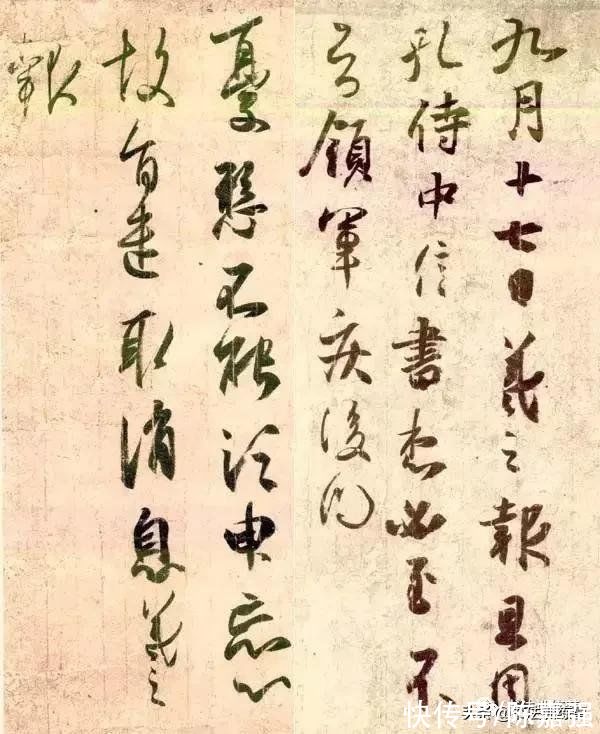 九月十七日羲之報且因
孔侍中信書想必至不
知領軍疾後問
憂懸不能須臾忘心
故旨遣取消息羲之
報
快传号/陈嘉强